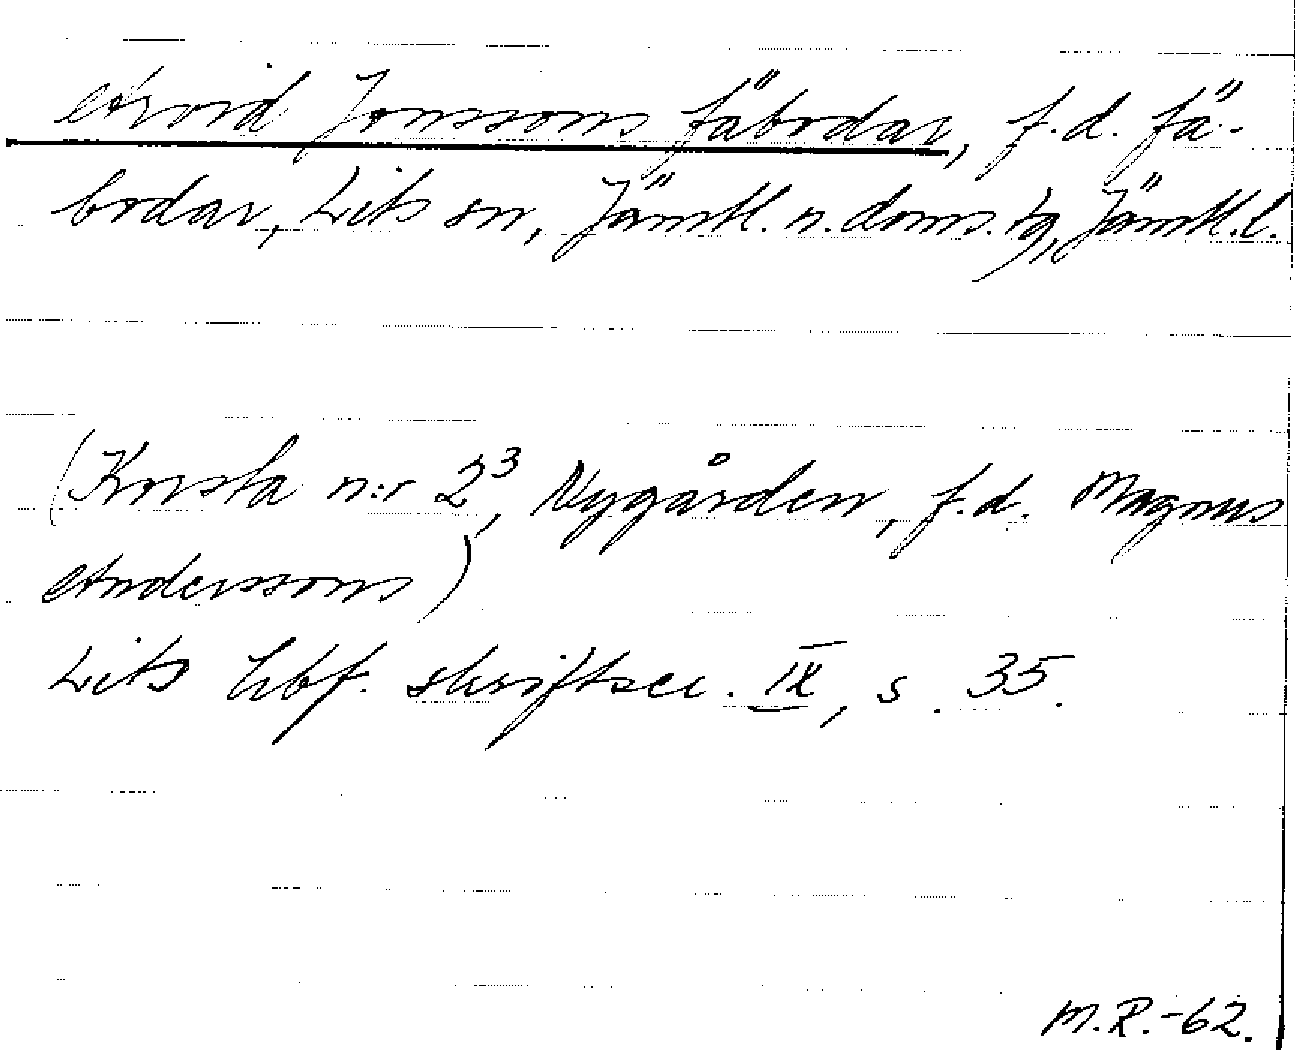 Arvid Jonssons fäbodar, f.d. fä-
bodar, Lits sn, Jämtl. n. doms. tg, Jämtl. l.
(Korsta n:r 2³, Nygården, f.d. Magnus
Anderssons)
Lits hbf. skriftser. IX, s. 35.
M.R.-62.